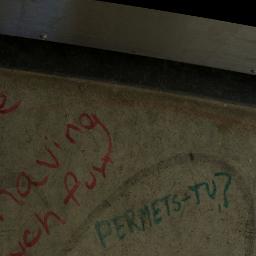 e
having
uch fun
PERMETS-TU?